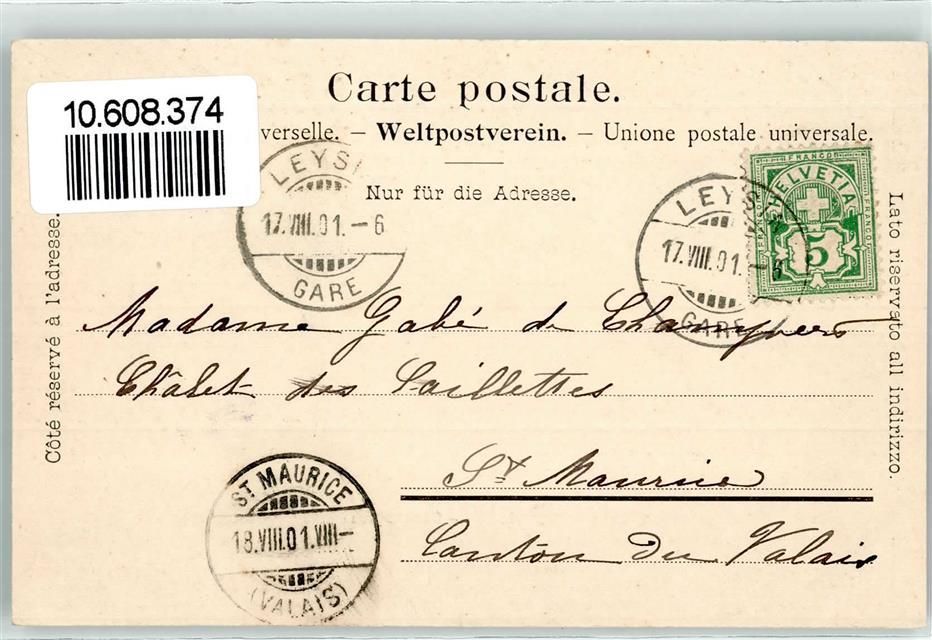 Carte postale.
10.608.374
verselle. – Weltpostverein. – Unione postale universale.
Nur für die Adresse.
LEYSI
17.VIII.01.–6
GARE
LEYSI
17.VIII.01.–6
GARE
FRANCO
HELVETIA
FRANCO
FRANCO
5
Côté réservé à l'adresse.
Lato riservato all indirizzo.
Madame Gabé de
Châlet des Saillettes
St Maurice
Canton du Valais
ST MAURICE
18.VIII.01.VIII–
(VALAIS)